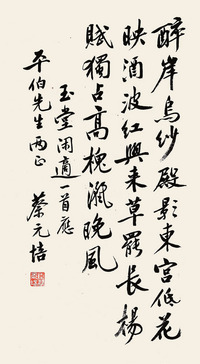 醉岸烏紗殿影東宮低花
映酒波紅興来草罷長楊
賦獨占高槐潄晚風
玉堂閑適一首應
平伯先生兩正
蔡元培